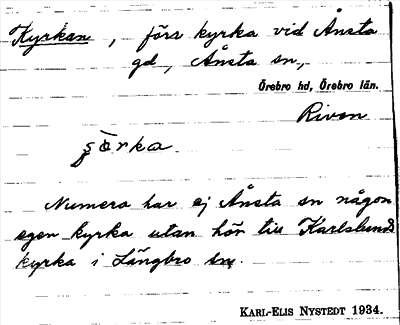 Kyrkan, förr kyrka vid Ånsta
gd, Ånsta sn,
Örebro hd, Örebro län.
Riven
Numera har ej Ånsta sn någon
egen kyrka utan hör till Karlslunds
kyrka i Längbro sn.
KARL-ELIS NYSTEDT 1934.